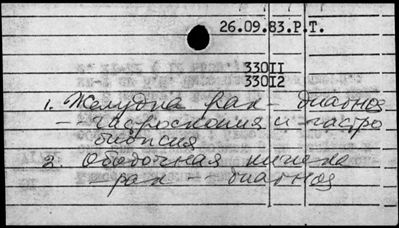 26.09.83.Р.Т.
33011
33012
1. Желудка рак - диагноз
- гастроскопия и гастро
биопсия
2. Ободочная кишка
рак - диагноз